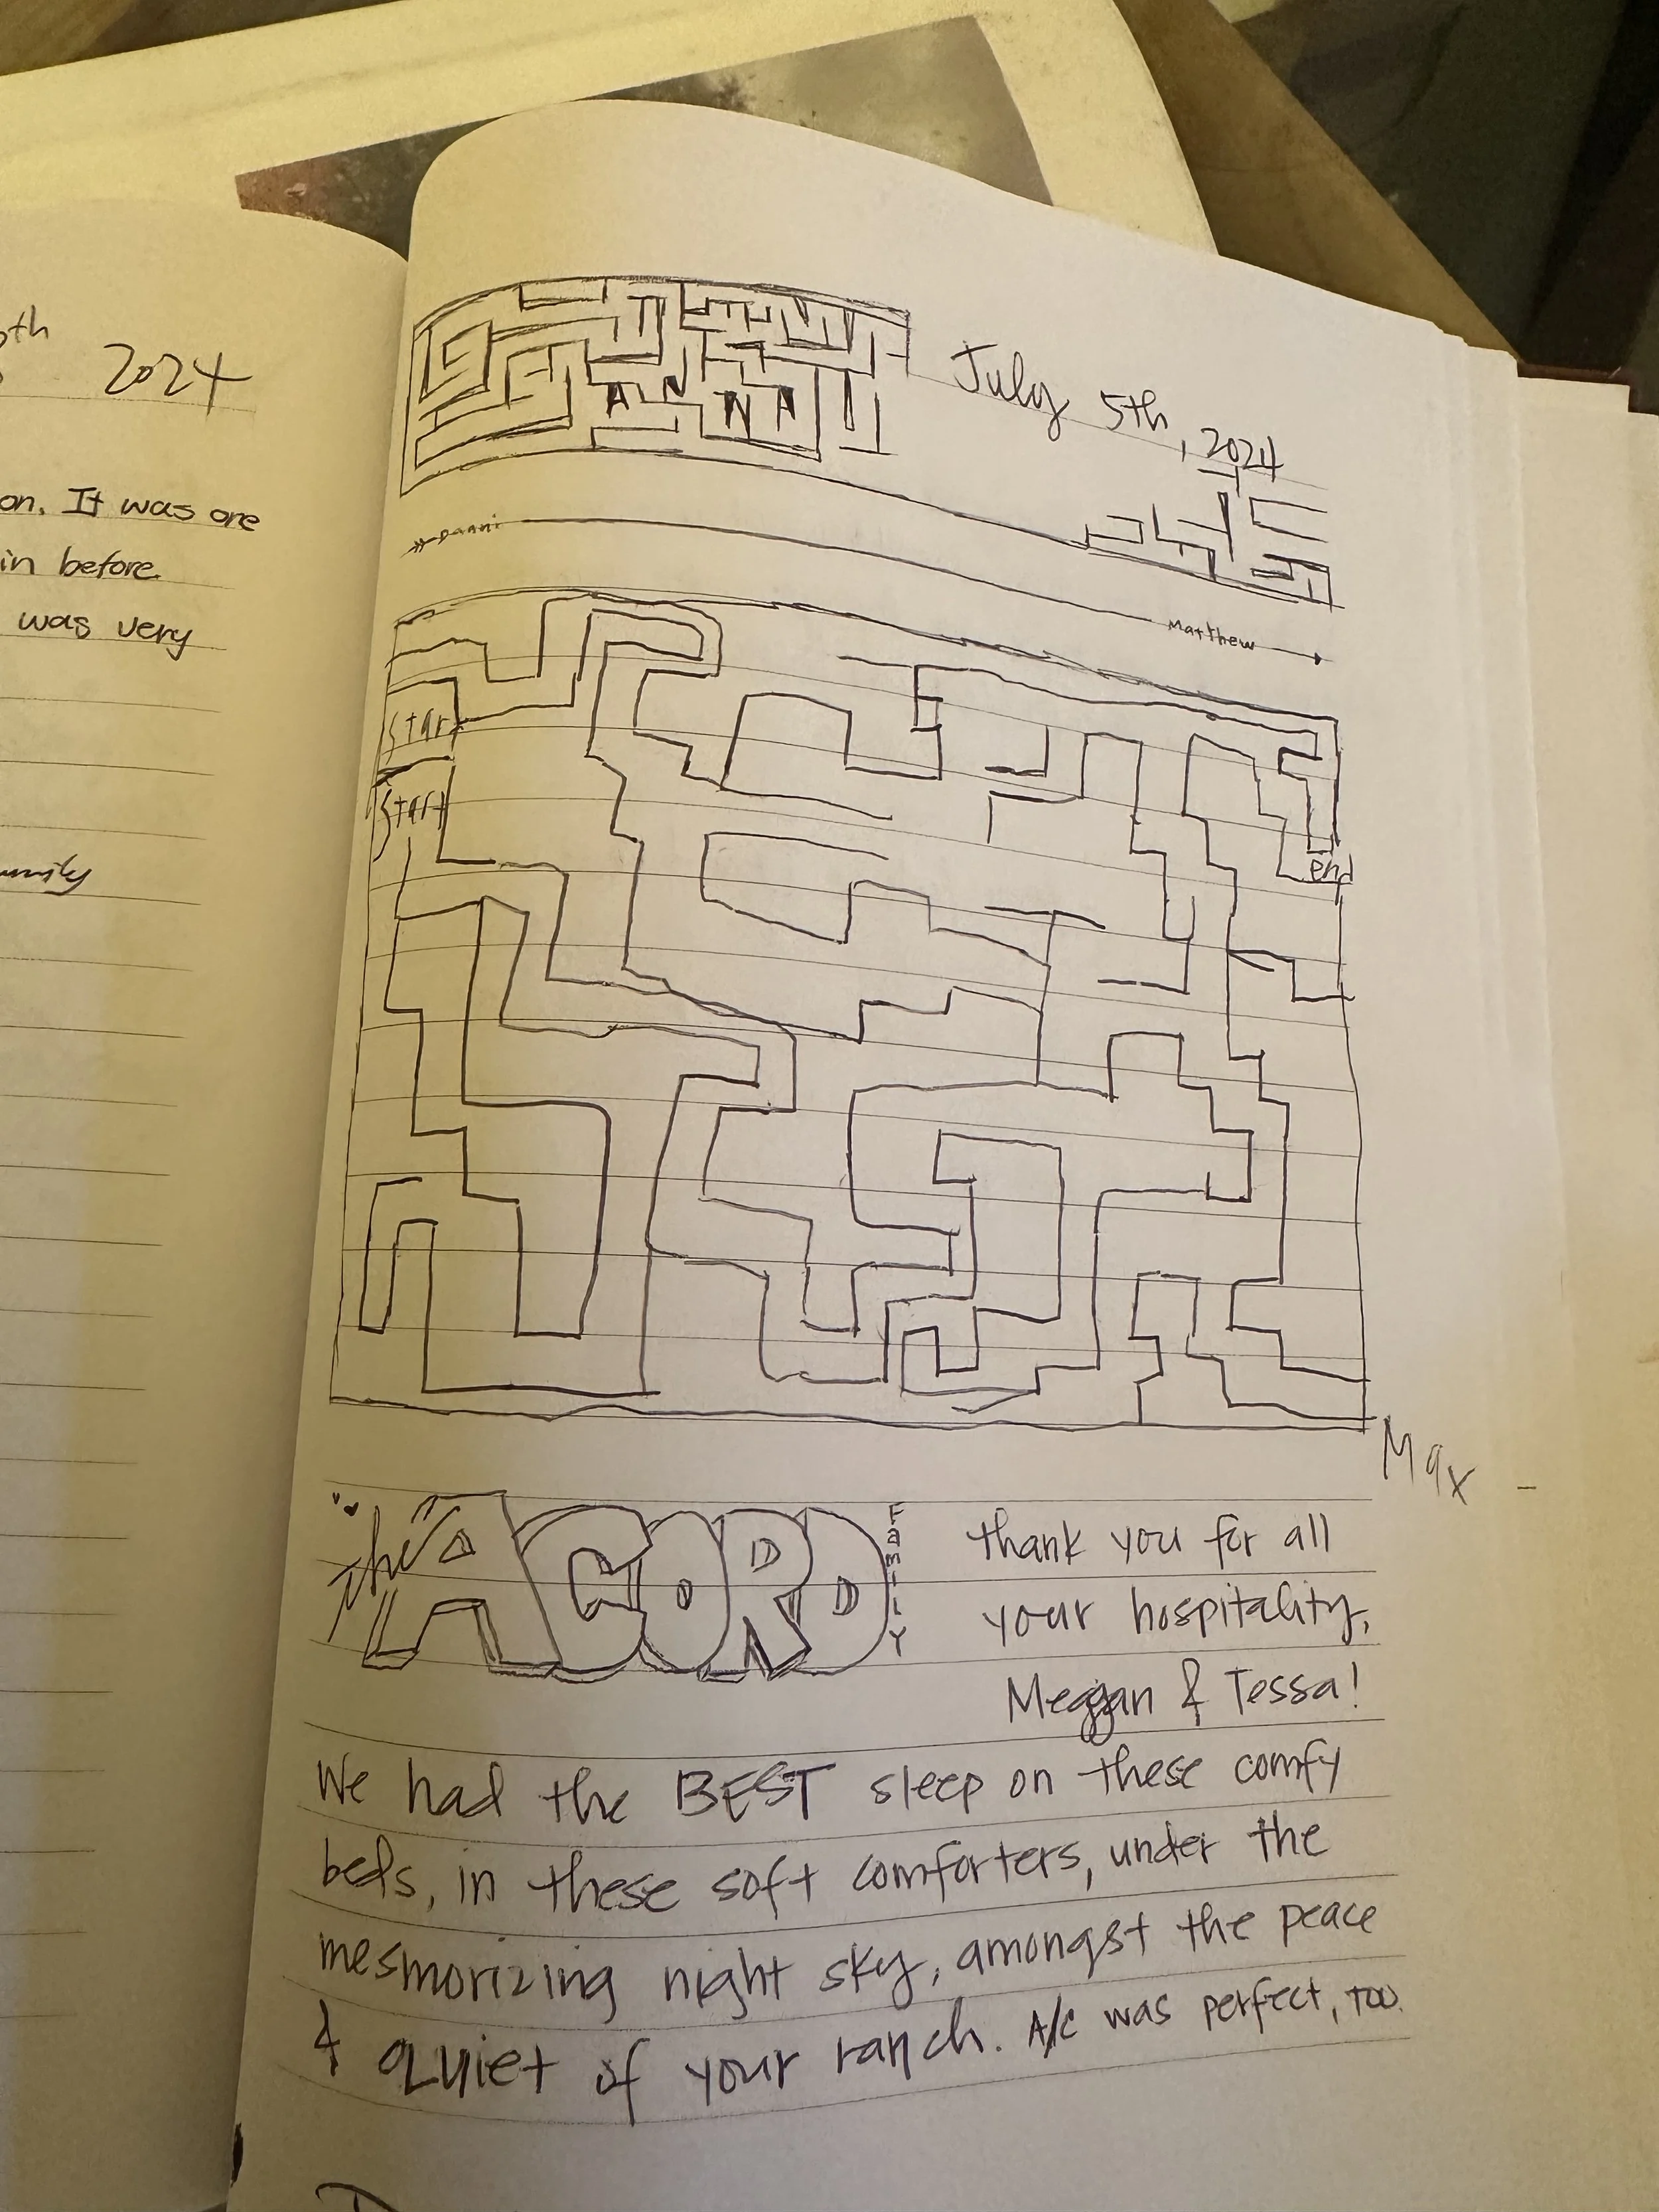 th
2024
on. It was one
in before
was very
July 5th, 2024
ANNA
Danni
Matthew
Start
Start
end
Max
The ACORD FAMILY
Thank you for all
your hospitality,
Meggan & Tessa!
We had the BEST sleep on these comfy
beds, in these soft comforters, under the
mesmorizing night sky, amongst the peace
& quiet of your ranch. A/C was perfect, too.